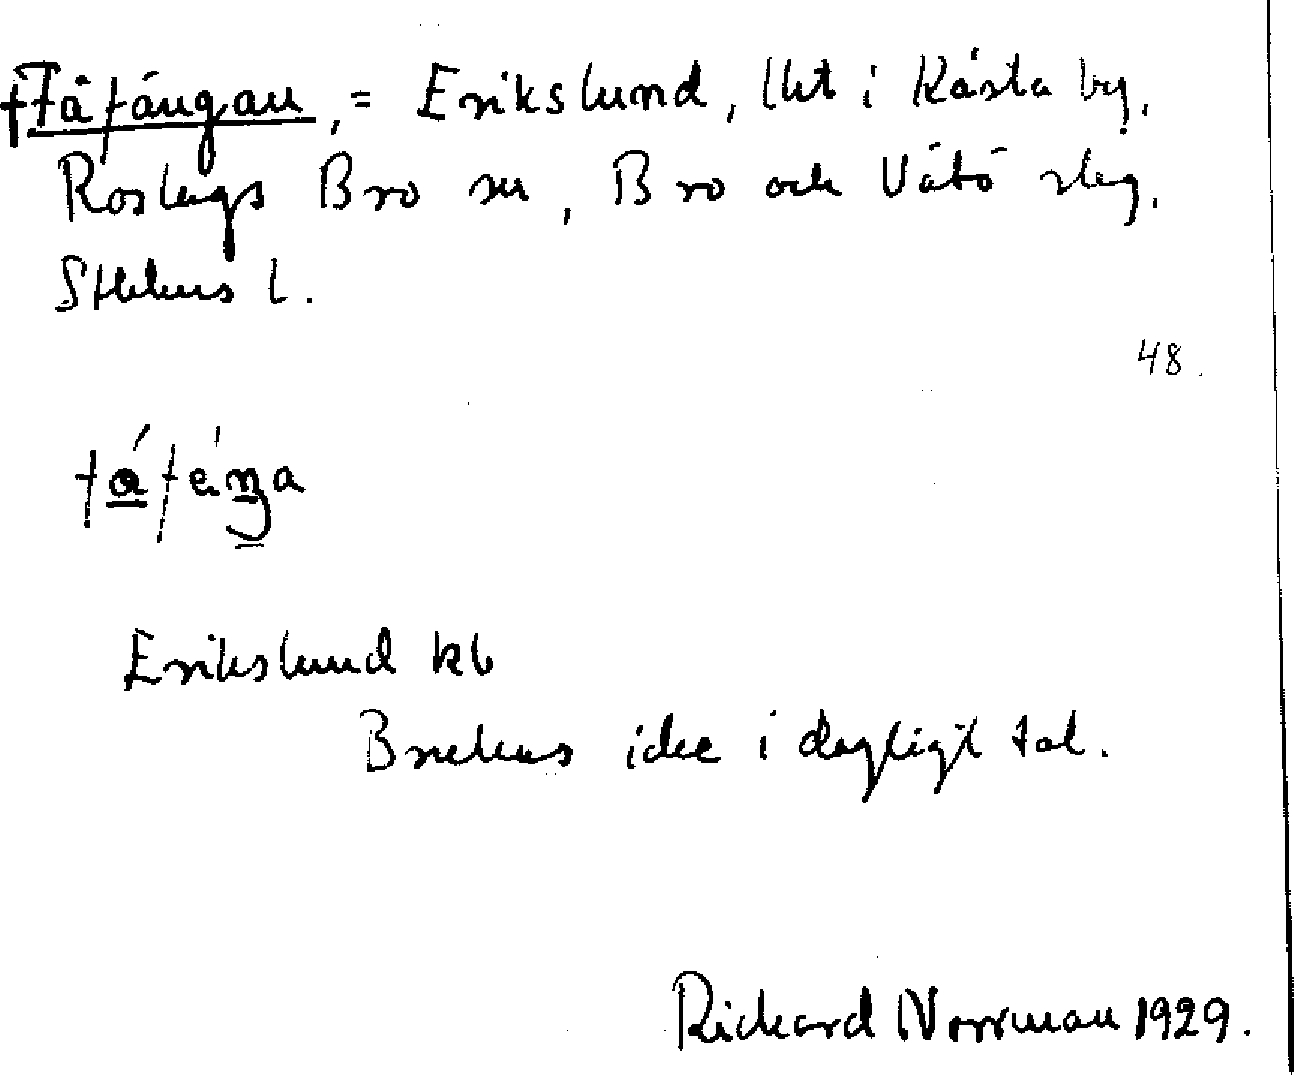 †Fåfängan, = Erikslund, lht i Kåsta by,
Roslags Bro sn, Bro och Vätö slag.
Sthlms l.
48.
fåfäŋa
Erikslund kb
Brukas icke i dagligt tal.
Rickard Norrman 1929.